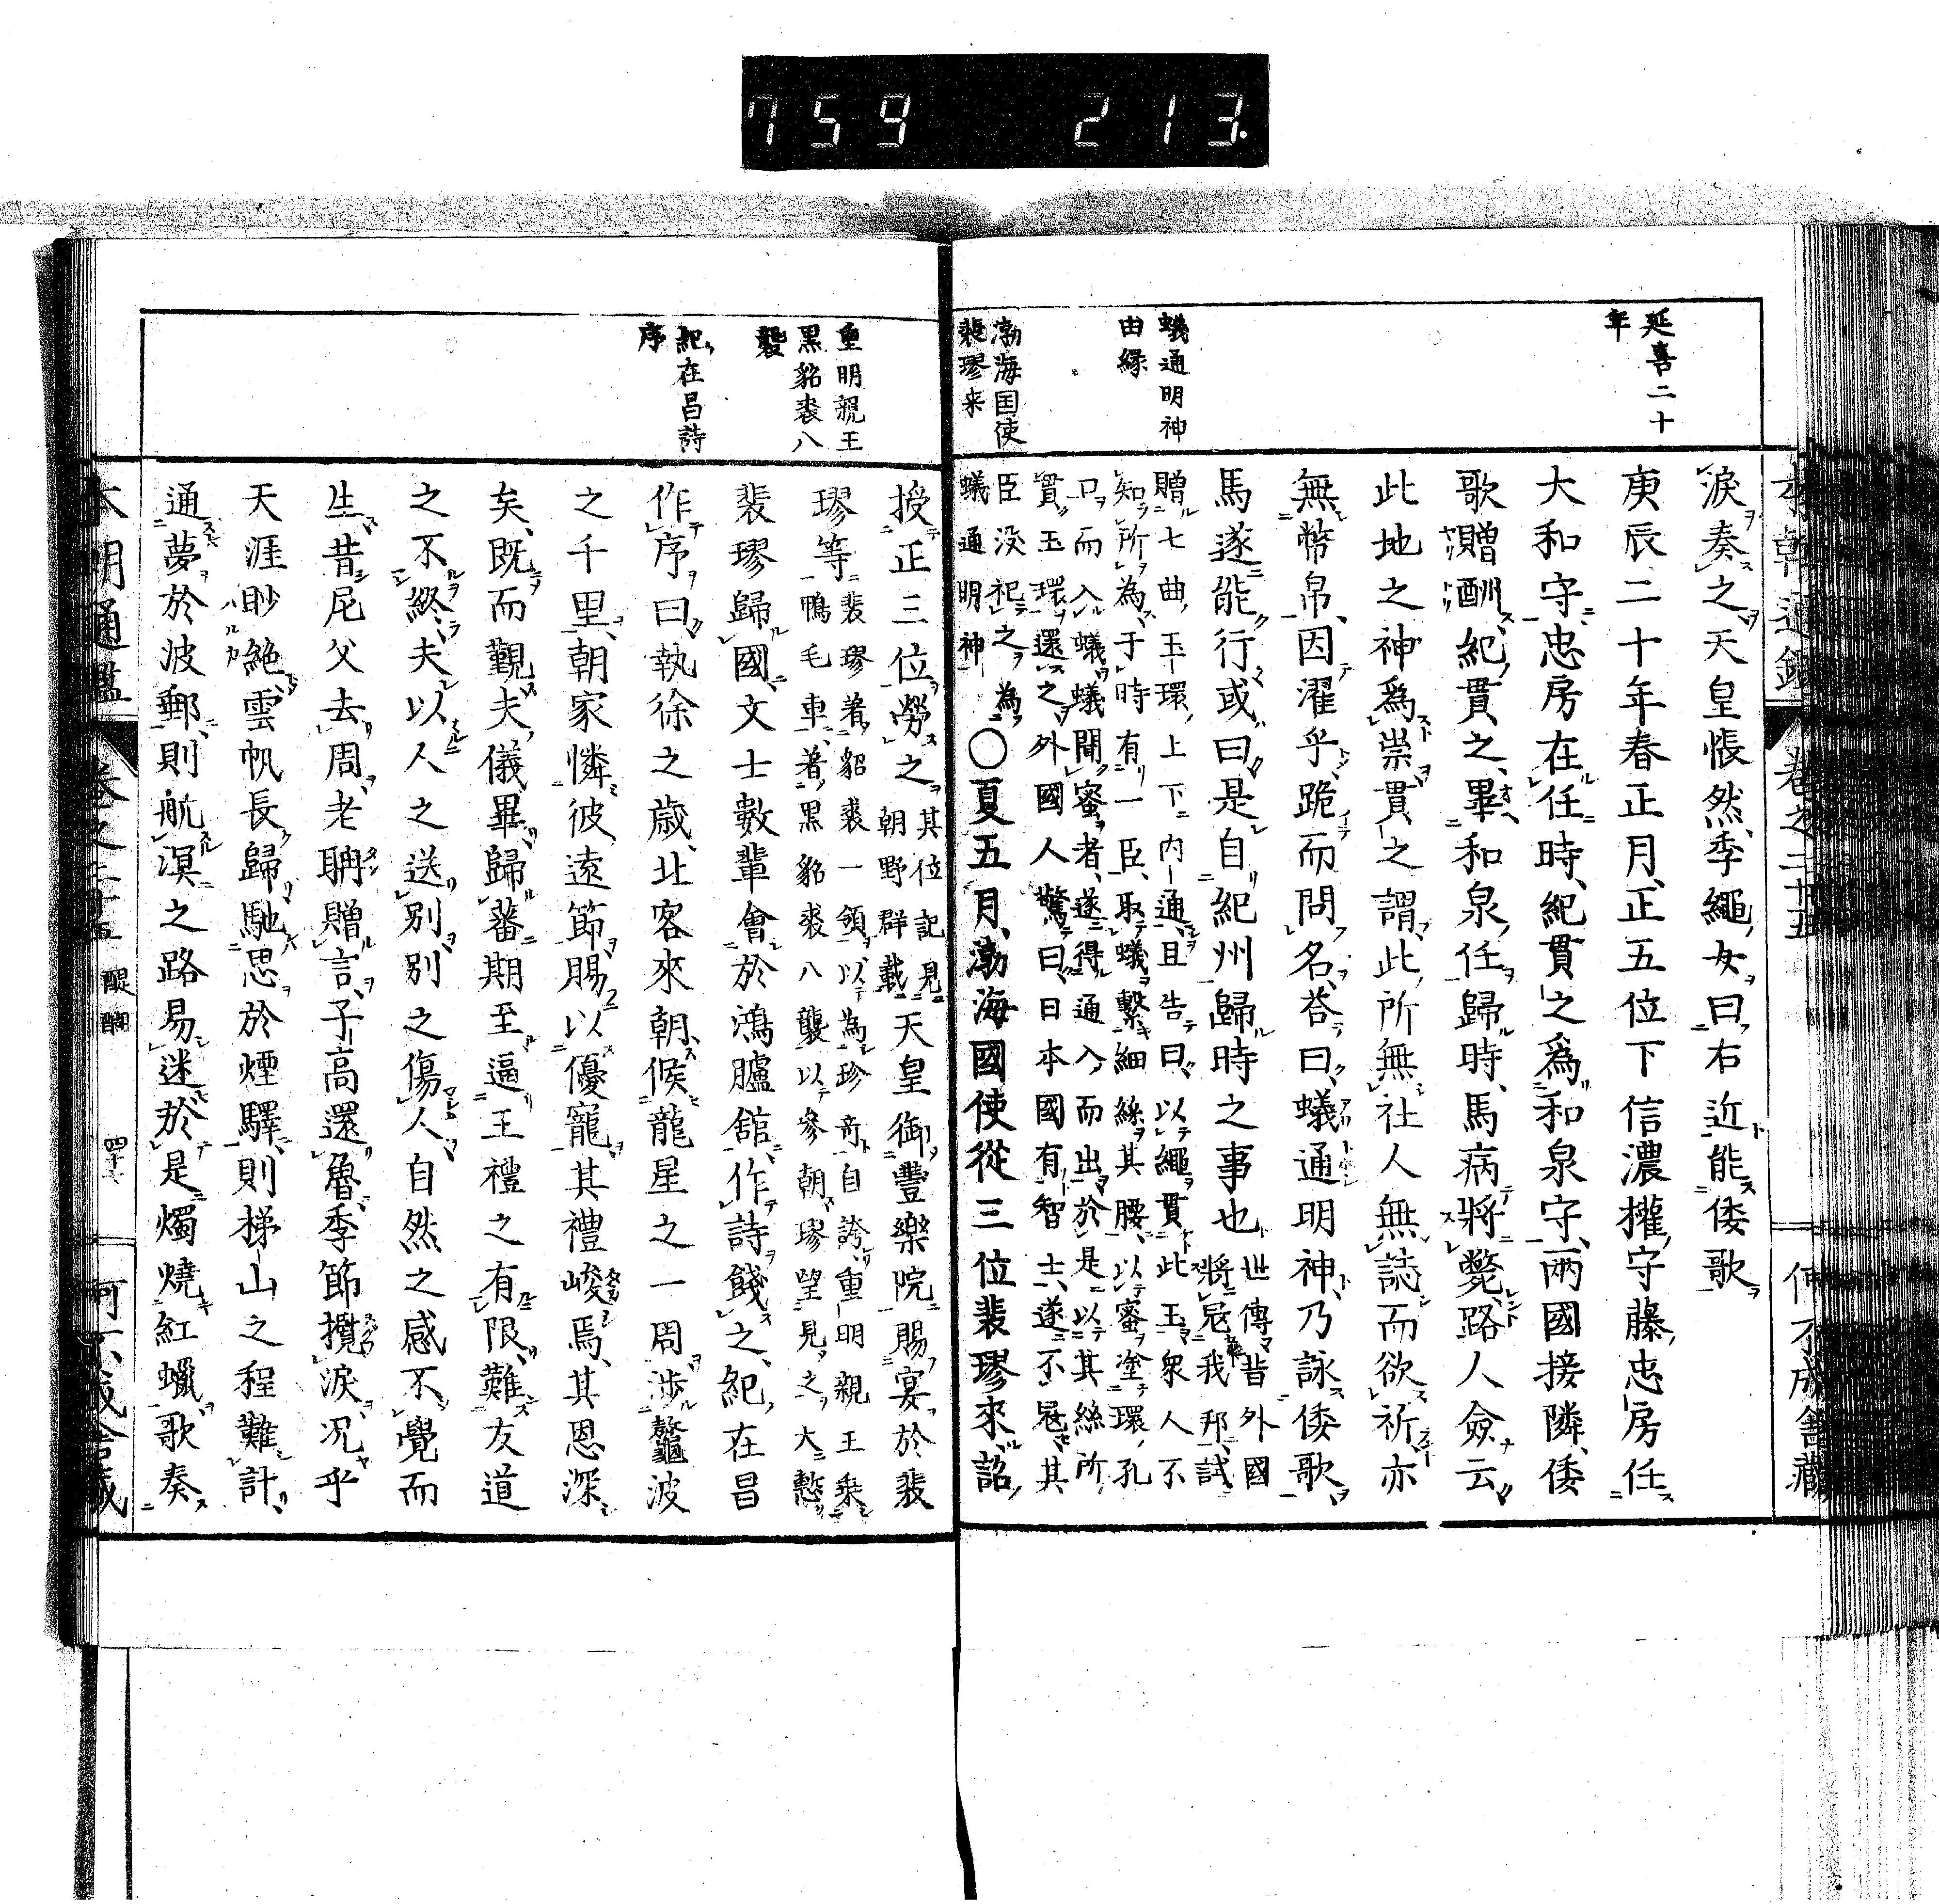 759 213
延喜二十
年
蟻通明神
由縁
渤海国使
裴璆来
淚奏之天皇悵然季繩女曰右近能倭歌
庚辰二十年春正月正五位下信濃權守藤忠房任
大和守忠房在任時紀貫之爲和泉守兩國接隣倭
歌贈酬紀貫之畢和泉任歸時馬病將斃路人僉云
此地之神爲祟貫之謂此所無社人無誌而欲祈亦
無幣帛因濯乎跪而問名荅曰蟻通明神乃詠倭歌
馬遂能行或曰是自紀州歸時之事也
世傳昔外國
將冦我邦試
贈七曲玉環上下內通且告曰以繩貫此玉衆人不
知所為于時有一臣取蟻繫細絲其腰以蜜塗環孔
口而入蟻蟻聞蜜者遂得通入而出於是以其絲所
貫玉環還之外國人驚曰日本國有智士遂不冦其
臣没祀之為
蟻通明神
○夏五月渤海國使從三位裴璆來詔
本朝通鑑 卷之二十五 何不成舍藏
重明親王
黒貂裘八
襲
紀在昌詩
序
授正三位勞之
其位記見
朝野群載
天皇御豐樂院賜宴於裴
璆等
裴璆著貂裘一領以為珍奇自誇重明親王乗
鴨毛車著黒貂裘八襲以參朝璆望見之大慙
裴璆歸國文士數輩會於鴻臚舘作詩餞之紀在昌
作序曰執徐之歳北客來朝候龍星之一周渉鼇波
之千里朝家憐彼遠節賜以優寵其禮峻焉其恩深
矣既而觀夫儀畢歸蕃期至逼王禮之有限難友道
之不終夫以人之送別別之傷人自然之感不覺而
生昔尼父去周老聃贈言子高還魯季節攬淚况乎
天涯眇絶雲帆長歸馳思於煙驛則梯山之程難計
通夢於波郵則航溟之路易迷於是燭燒紅蠟歌奏
本朝通鑑 卷之二十五 醍醐 何不成舍藏